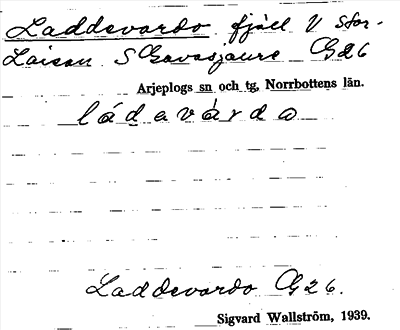 Laddevardo fjäll V Stor-
Laisan S Gavasjaure G26
Arjeplogs sn och tg, Norrbottens län.
ládavárdo
Laddevardo G26.
Sigvard Wallström, 1939.